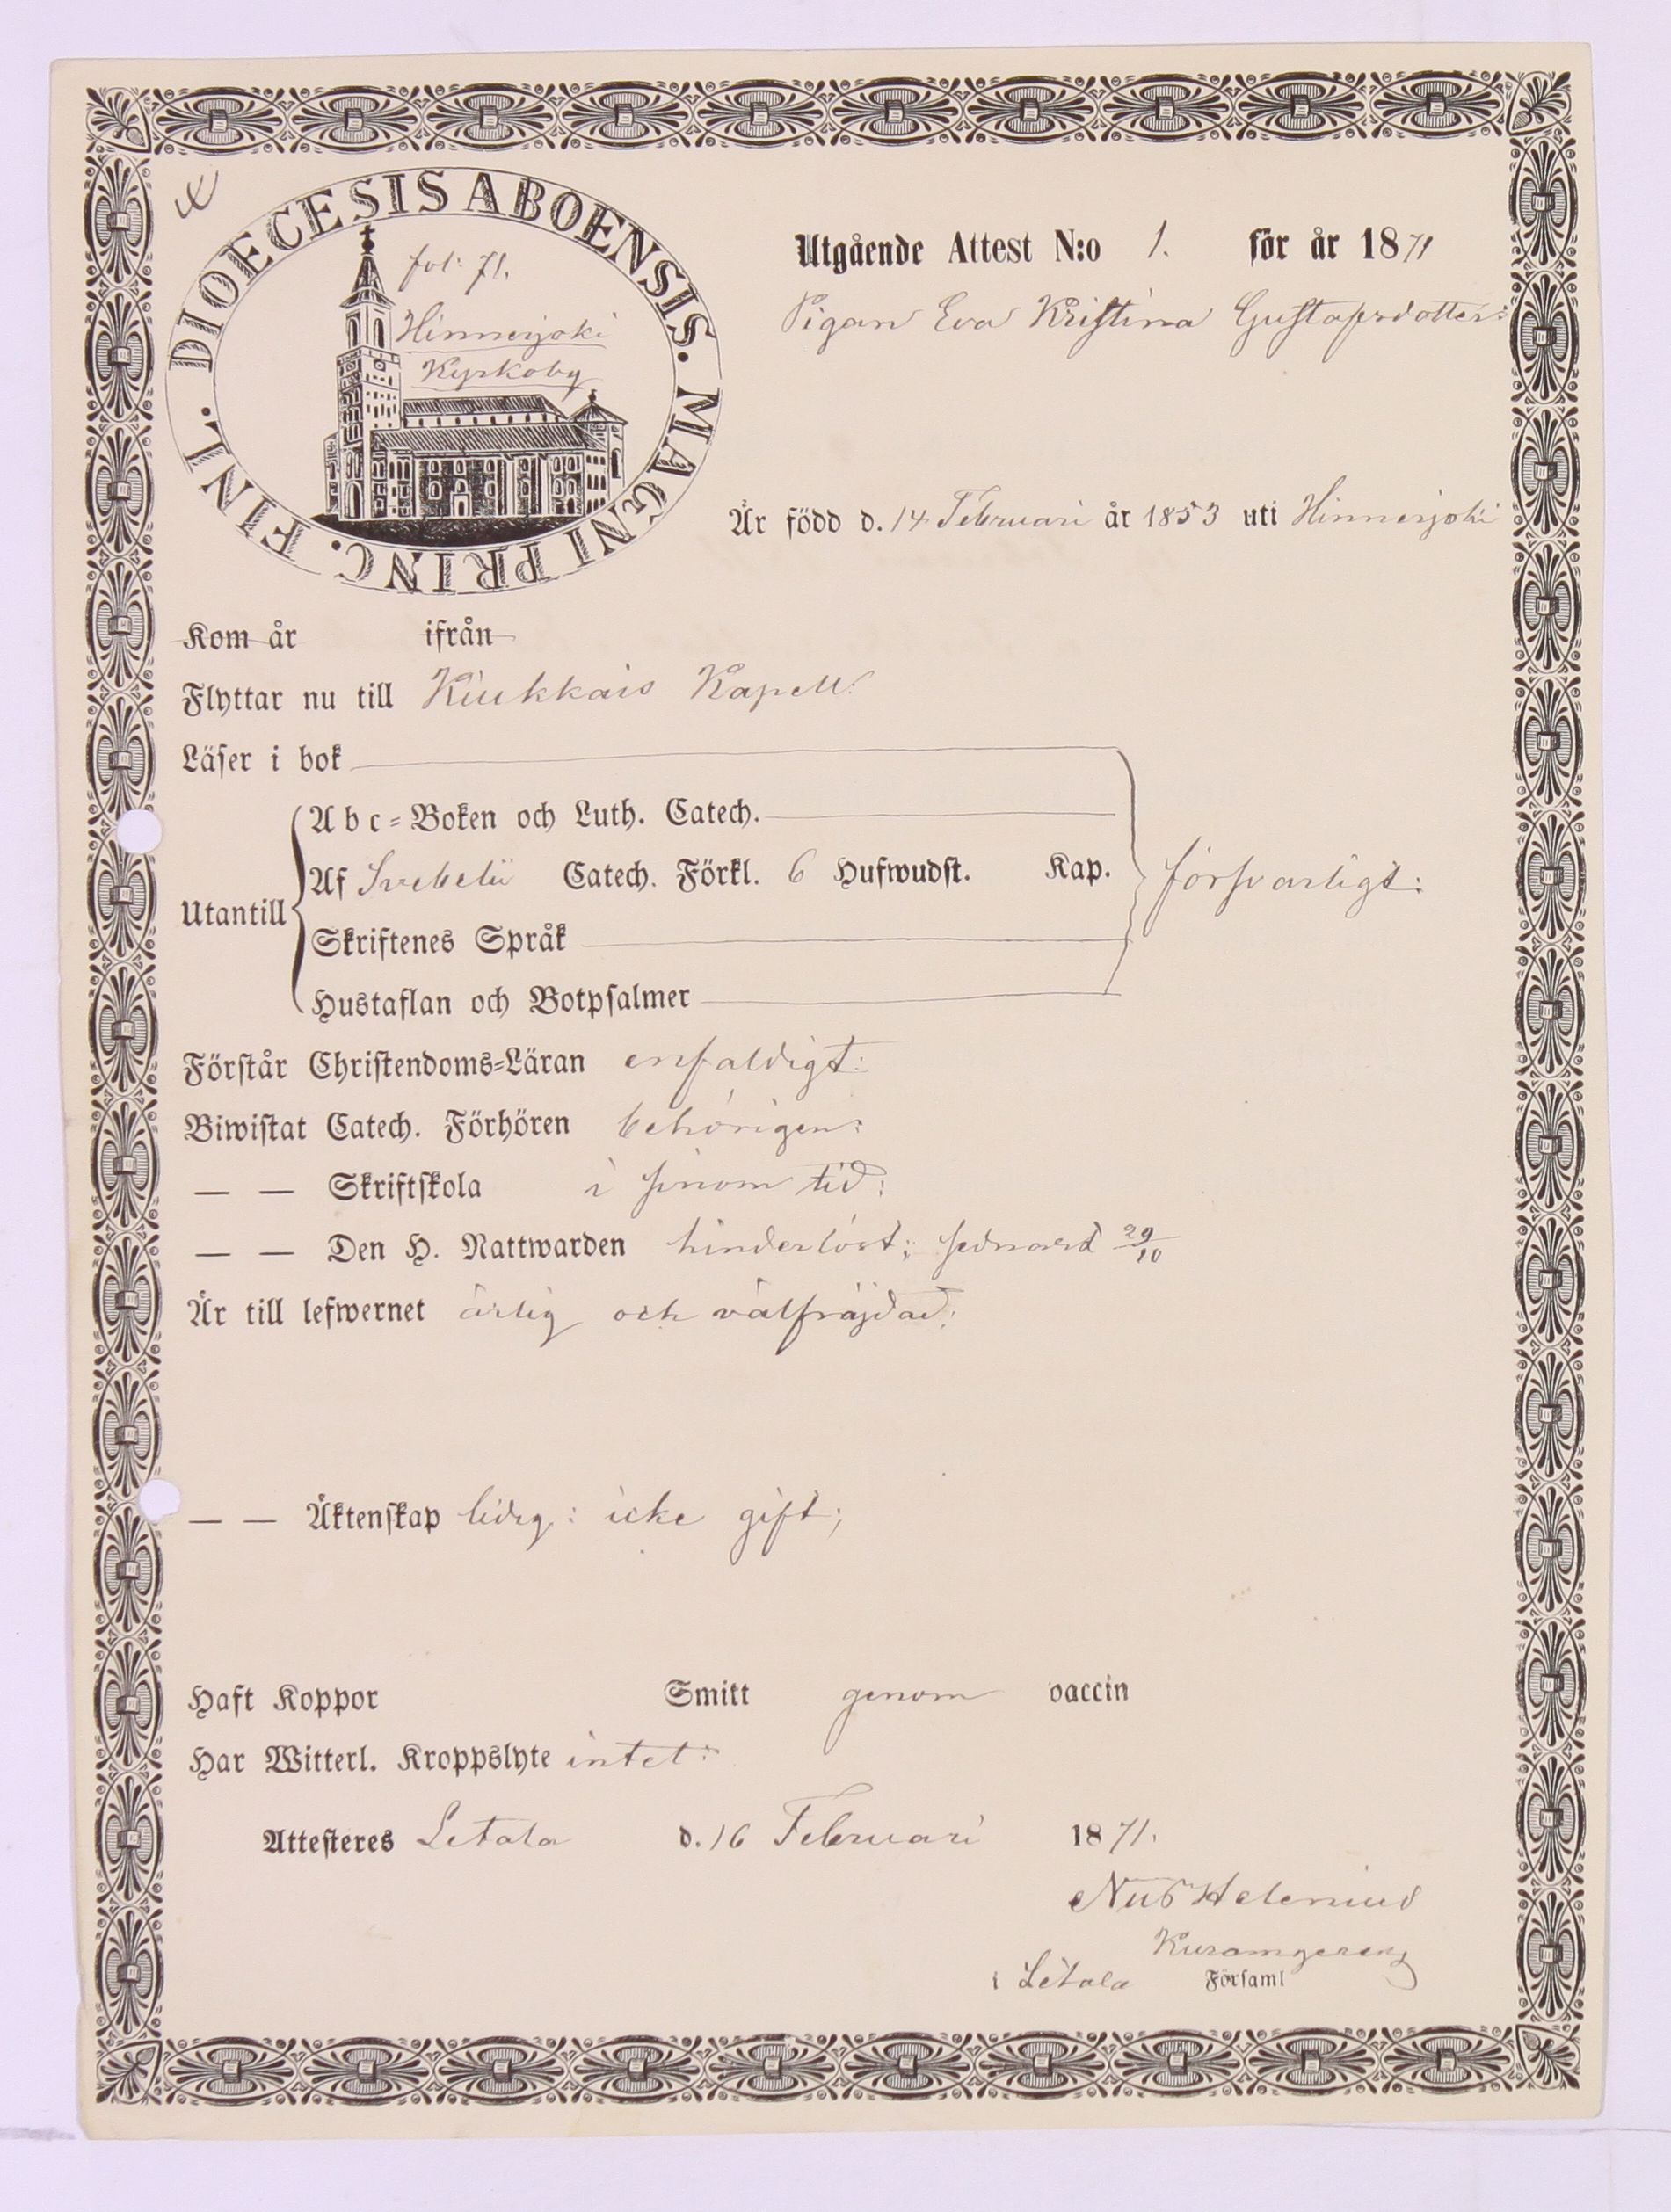 DIOECESIS ABOENSIS. MAGNI PRINC. FINL.
fol: 71.
Hinnerjoki
Kyrkoby
Utgående Attest N:o 1. för år 1871
Pigan Eva Kristina Gustafsdotter:
Är född d. 14 Februari år 1853 uti Hinnerjoki
Kom år ifrån
Flyttar nu till Kiukkais Kapell:
Läser i bok
Utantill
Abc=Boken och Luth. Catech.
Af Svebelii Catech. Förkl. 6 Hufwudst. Kap.
försvarligt:
Skriftenes Språk
Hustaflan och Botpsalmer
Förstår Christendoms=Läran enfaldigt:
Biwistat Catech. Förhören behörigen:
— — Skriftskola i sinom tid:
— — Den H. Nattwarden hinderlöst; sednast 29/10
Är till lefwernet ärlig och välfräjdad;
— — Äktenskap ledig: icke gift;
Haft Koppor Smitt genom vaccin
Har Witterl. Kroppslyte intet:
Attesteres Letala d. 16 Februari 1871.
Helenius
i Letala Församl